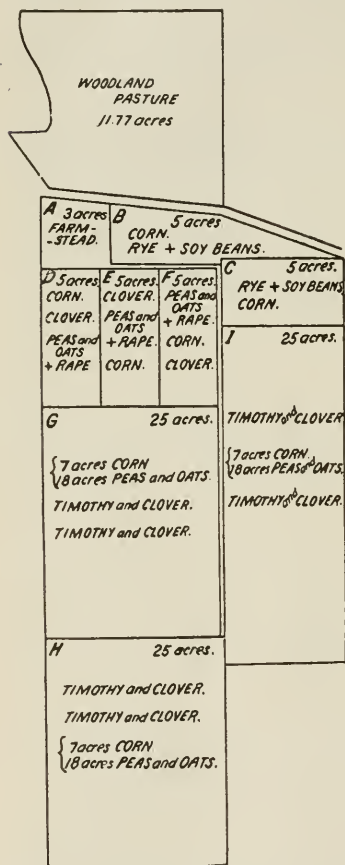 WOODLAND
PASTURE
11.77 acres
A 3 acres
FARM-
-STEAD.
B 5 acres
CORN.
RYE + SOY BEANS.
C 5 acres.
RYE + SOY BEANS
CORN.
D 5 acres.
CORN.
CLOVER.
PEAS and
OATS
+ RAPE
E 5 acres.
CLOVER.
PEAS and
OATS
+ RAPE.
CORN.
F 5 acres.
PEAS and
OATS
+ RAPE.
CORN.
CLOVER.
G 25 acres.
{7 acres CORN
18 acres PEAS and OATS.
TIMOTHY and CLOVER.
TIMOTHY and CLOVER.
I 25 acres.
TIMOTHY and CLOVER.
{7 acres CORN.
18 acres PEAS and OATS.
TIMOTHY and CLOVER.
H 25 acres.
TIMOTHY and CLOVER.
TIMOTHY and CLOVER.
{7 acres CORN
18 acres PEAS and OATS.